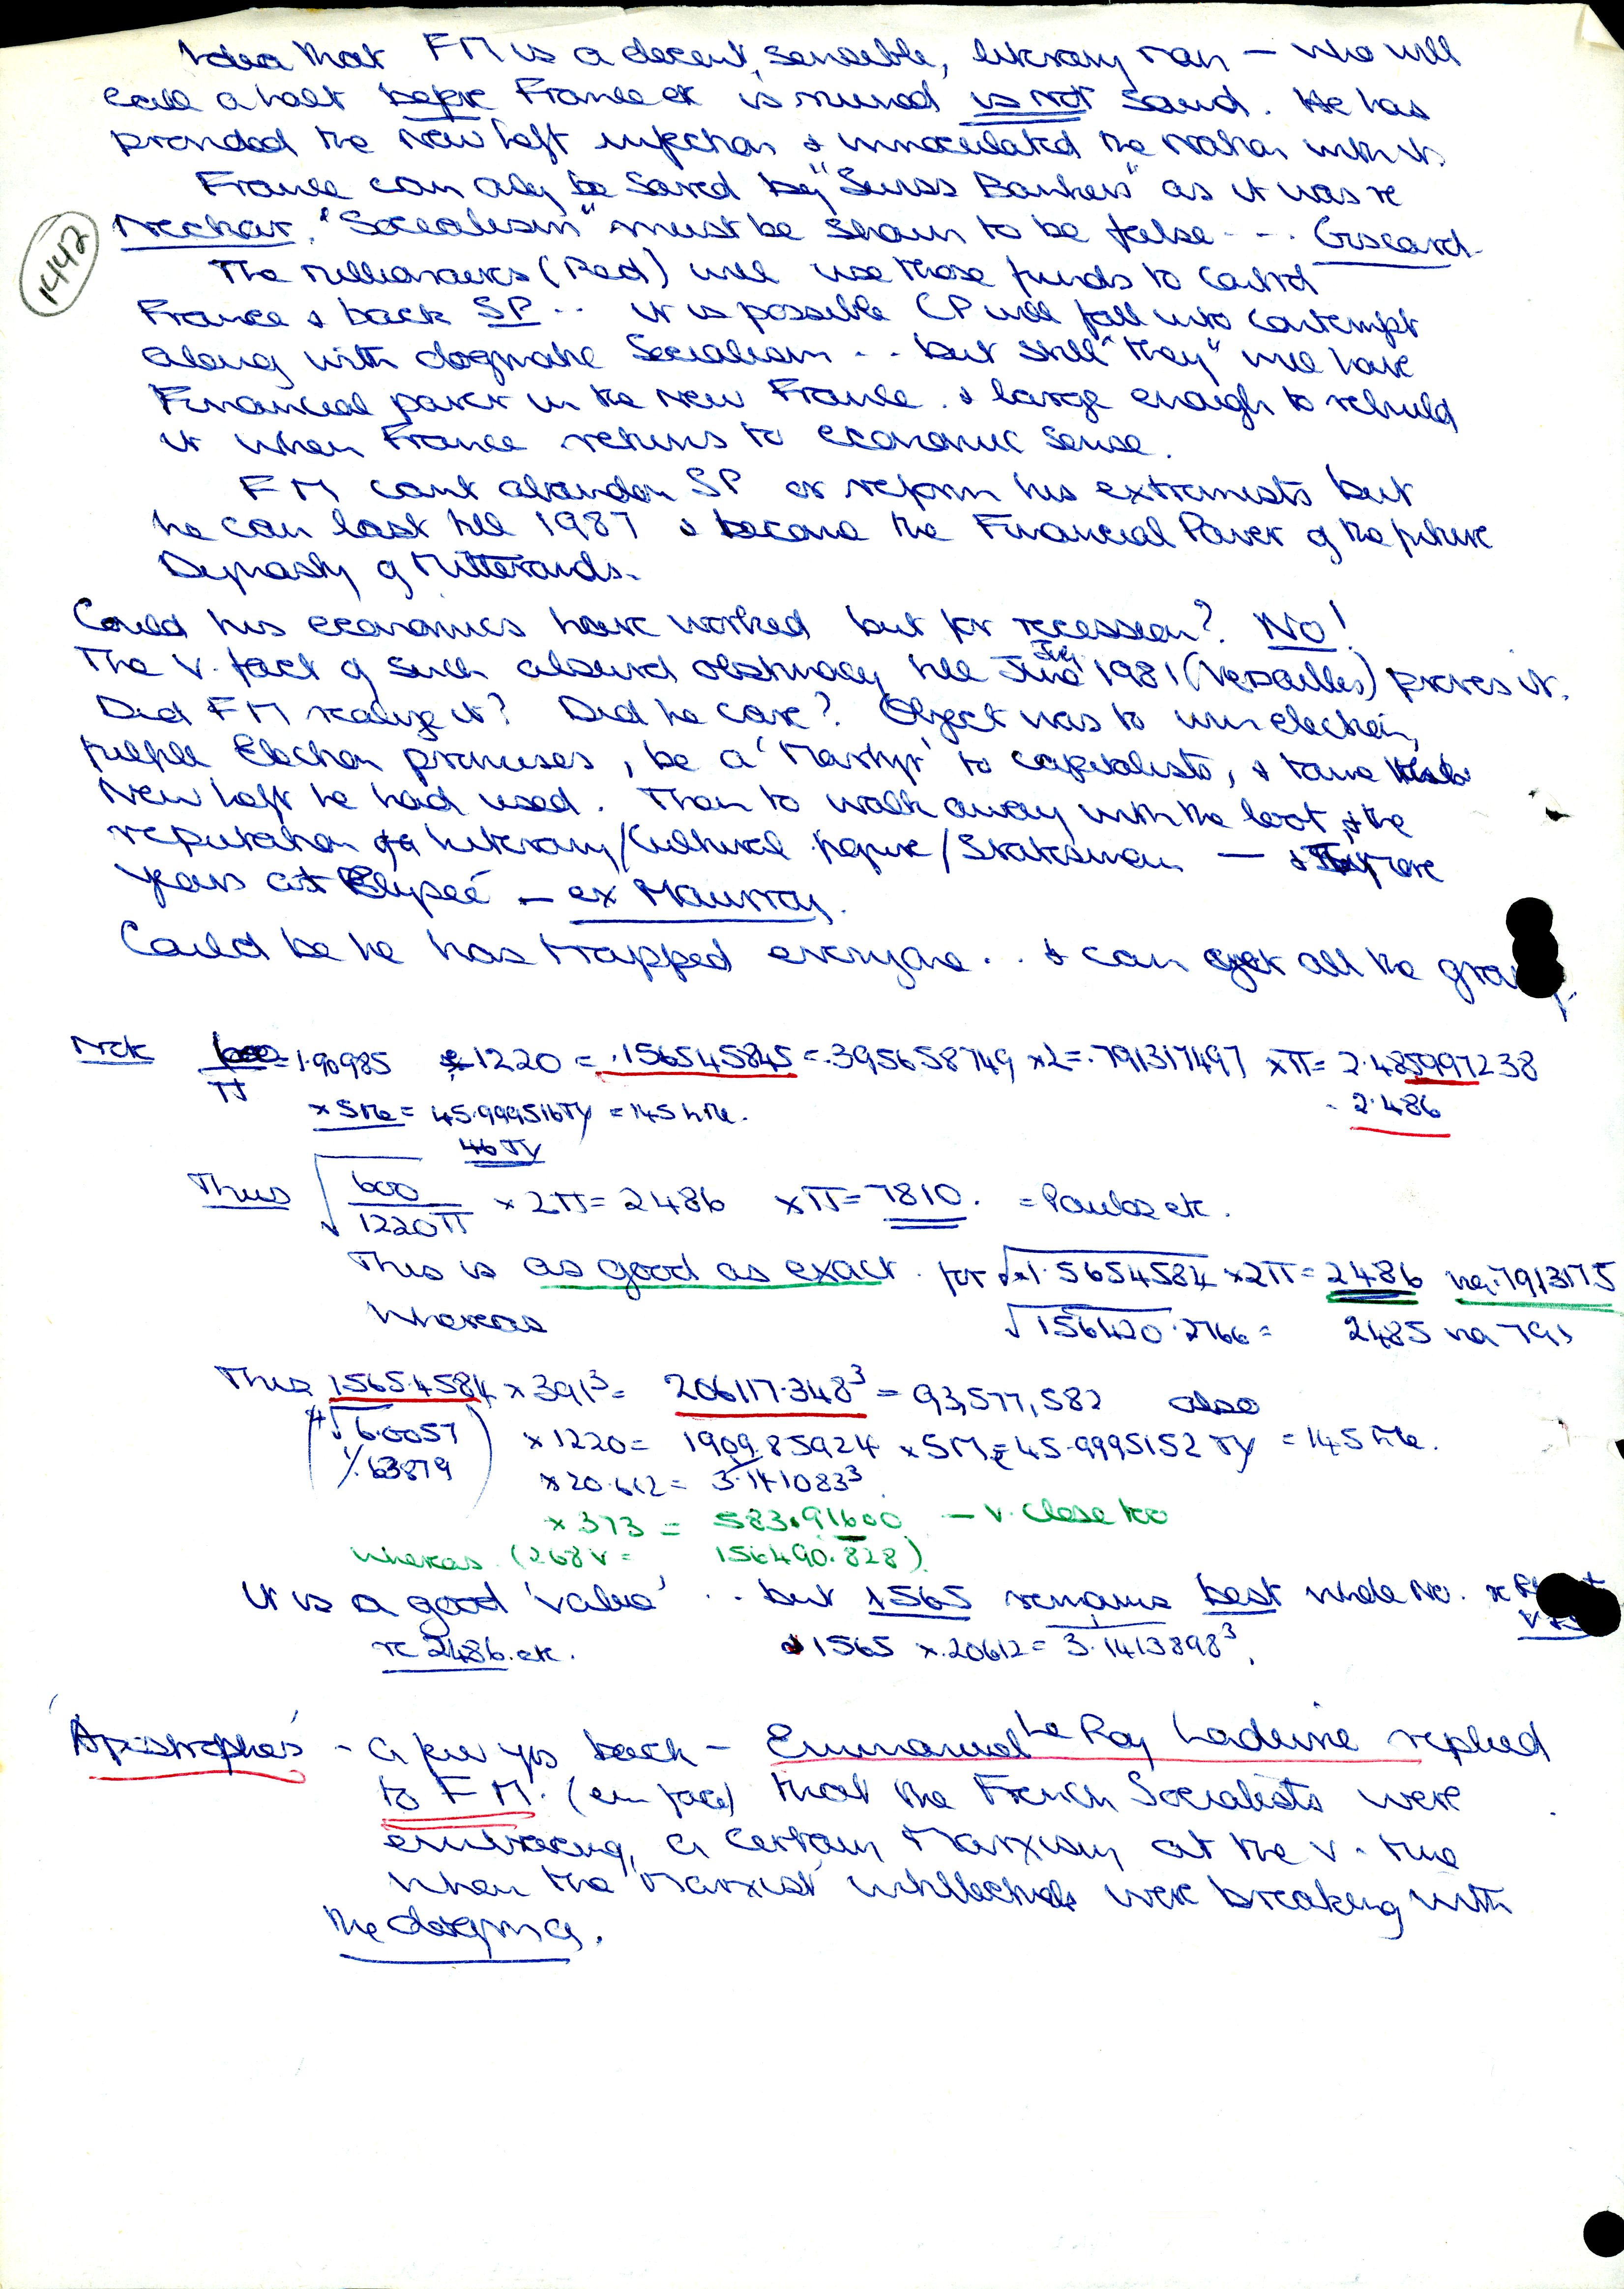 Idea that FM is a decent, sensible, literary man – who will
call a halt before France etc is ruined is not sound. He has
provided the New Left infection & innoculated the nation with it.
France can only be saved by "Swiss Bankers" as it was re
Neckar. "Socialism" must be shown to be false - - . Giscard.
1442
The millionaires (Red) will use those funds to control
France & back SP .. it is possible CP will fall into contempt
along with dogmatic Socialism .. but still "they" will have
Financial power in the New France. & large enough to rebuild
it when France returns to economic sense.
FM cant abandon SP or reform his extremists but
he can last till 1987 & become the Financial Power of the future
Dynasty of Mitterands.
Could his economics have worked but for recession? No!
The v. fact of such absurd obstinacy till June 1981 (Versailles) proves it.
Did FM realize it? Did he care? Object was to win election,
fulfill Election promises, be a 'Martyr' to capitalists, & tame
New Left he had used. Then to walk away with the loot, & the
reputation of a Literary/Cultural figure/Statesman — & more
years at Elyseé – ex Mauroy.
Could be he has trapped everyone .. & can get all the
Note 600/π = 1.90985 ÷ 1220 = .156545845 = .395658749 x2 = .791317497 xπ = 2.485997238
x 5Me = 45.999516πy = 145 hMe. 2.486
46πy
Thus √600/1220π x 2π = 2486 xπ = 7810. = etc.
This is as good as exact. for √1.5654584 x2π = 2486 via .7913175
whereas √156420.2766 = 2485 via 791
Thus 15654584 x 391³ = 206117.348³ = 93,577,582 also
(⁴√6.0057 x 1220 = 190985924 x 5Me = 45.9995152 πy = 145 hMe.
1/.63879) x 20.612 = 3.141083³
x 373 = 583.91600 — v. close too
whereas (268v = 156490.828)
it is a good 'value' .. but 1565 remains best whole No. re
re 2486. etc. & 1565 x .20612 = 3.1413898³.
'Apostrophes' – a few yrs back – Emmanuel Le Roy Ladurie replied
to FM. (en face) that the French Socialists were
embracing, a certain Marxism at the v. time
when the 'Marxist' intellectuals were breaking with
the dogma.